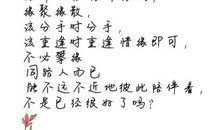 缘聚缘散，
该分手时分手，
该重逢时重逢惜缘即可，
不必攀缘
同路人而已
能不远不近地彼此陪伴着，
不是已经很好了吗？